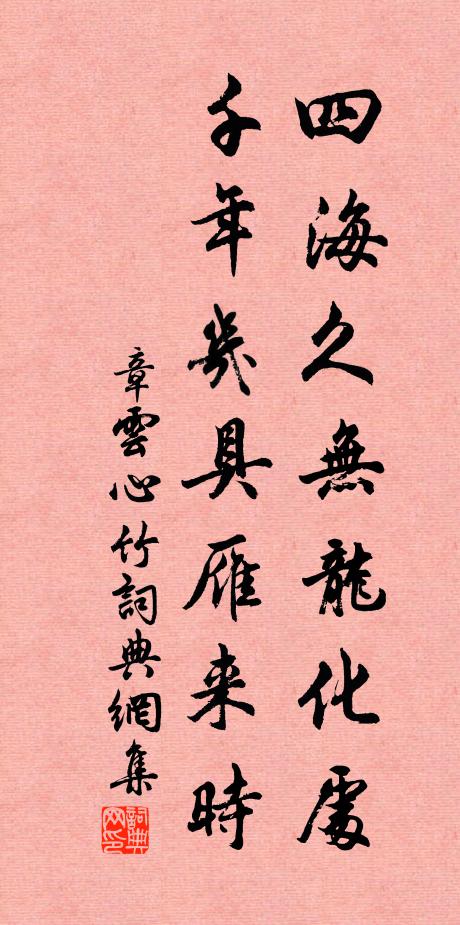 四海久無龍化處
千年幾具雁来時
章雲心竹詞典網集
詞典
网印